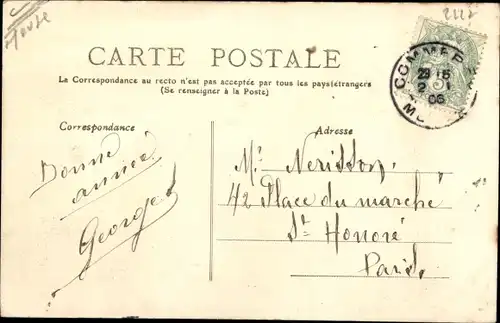 Meuse
2112
CARTE POSTALE
La Correspondance au recto n'est pas acceptée par tous les pays étrangers
(Se renseigner à la Poste)
Correspondance
Adresse
COMMER
23 15
2 1
06
Bonne
année
George
Mr. Nerisson
42 Place du marché
St Honoré
Paris